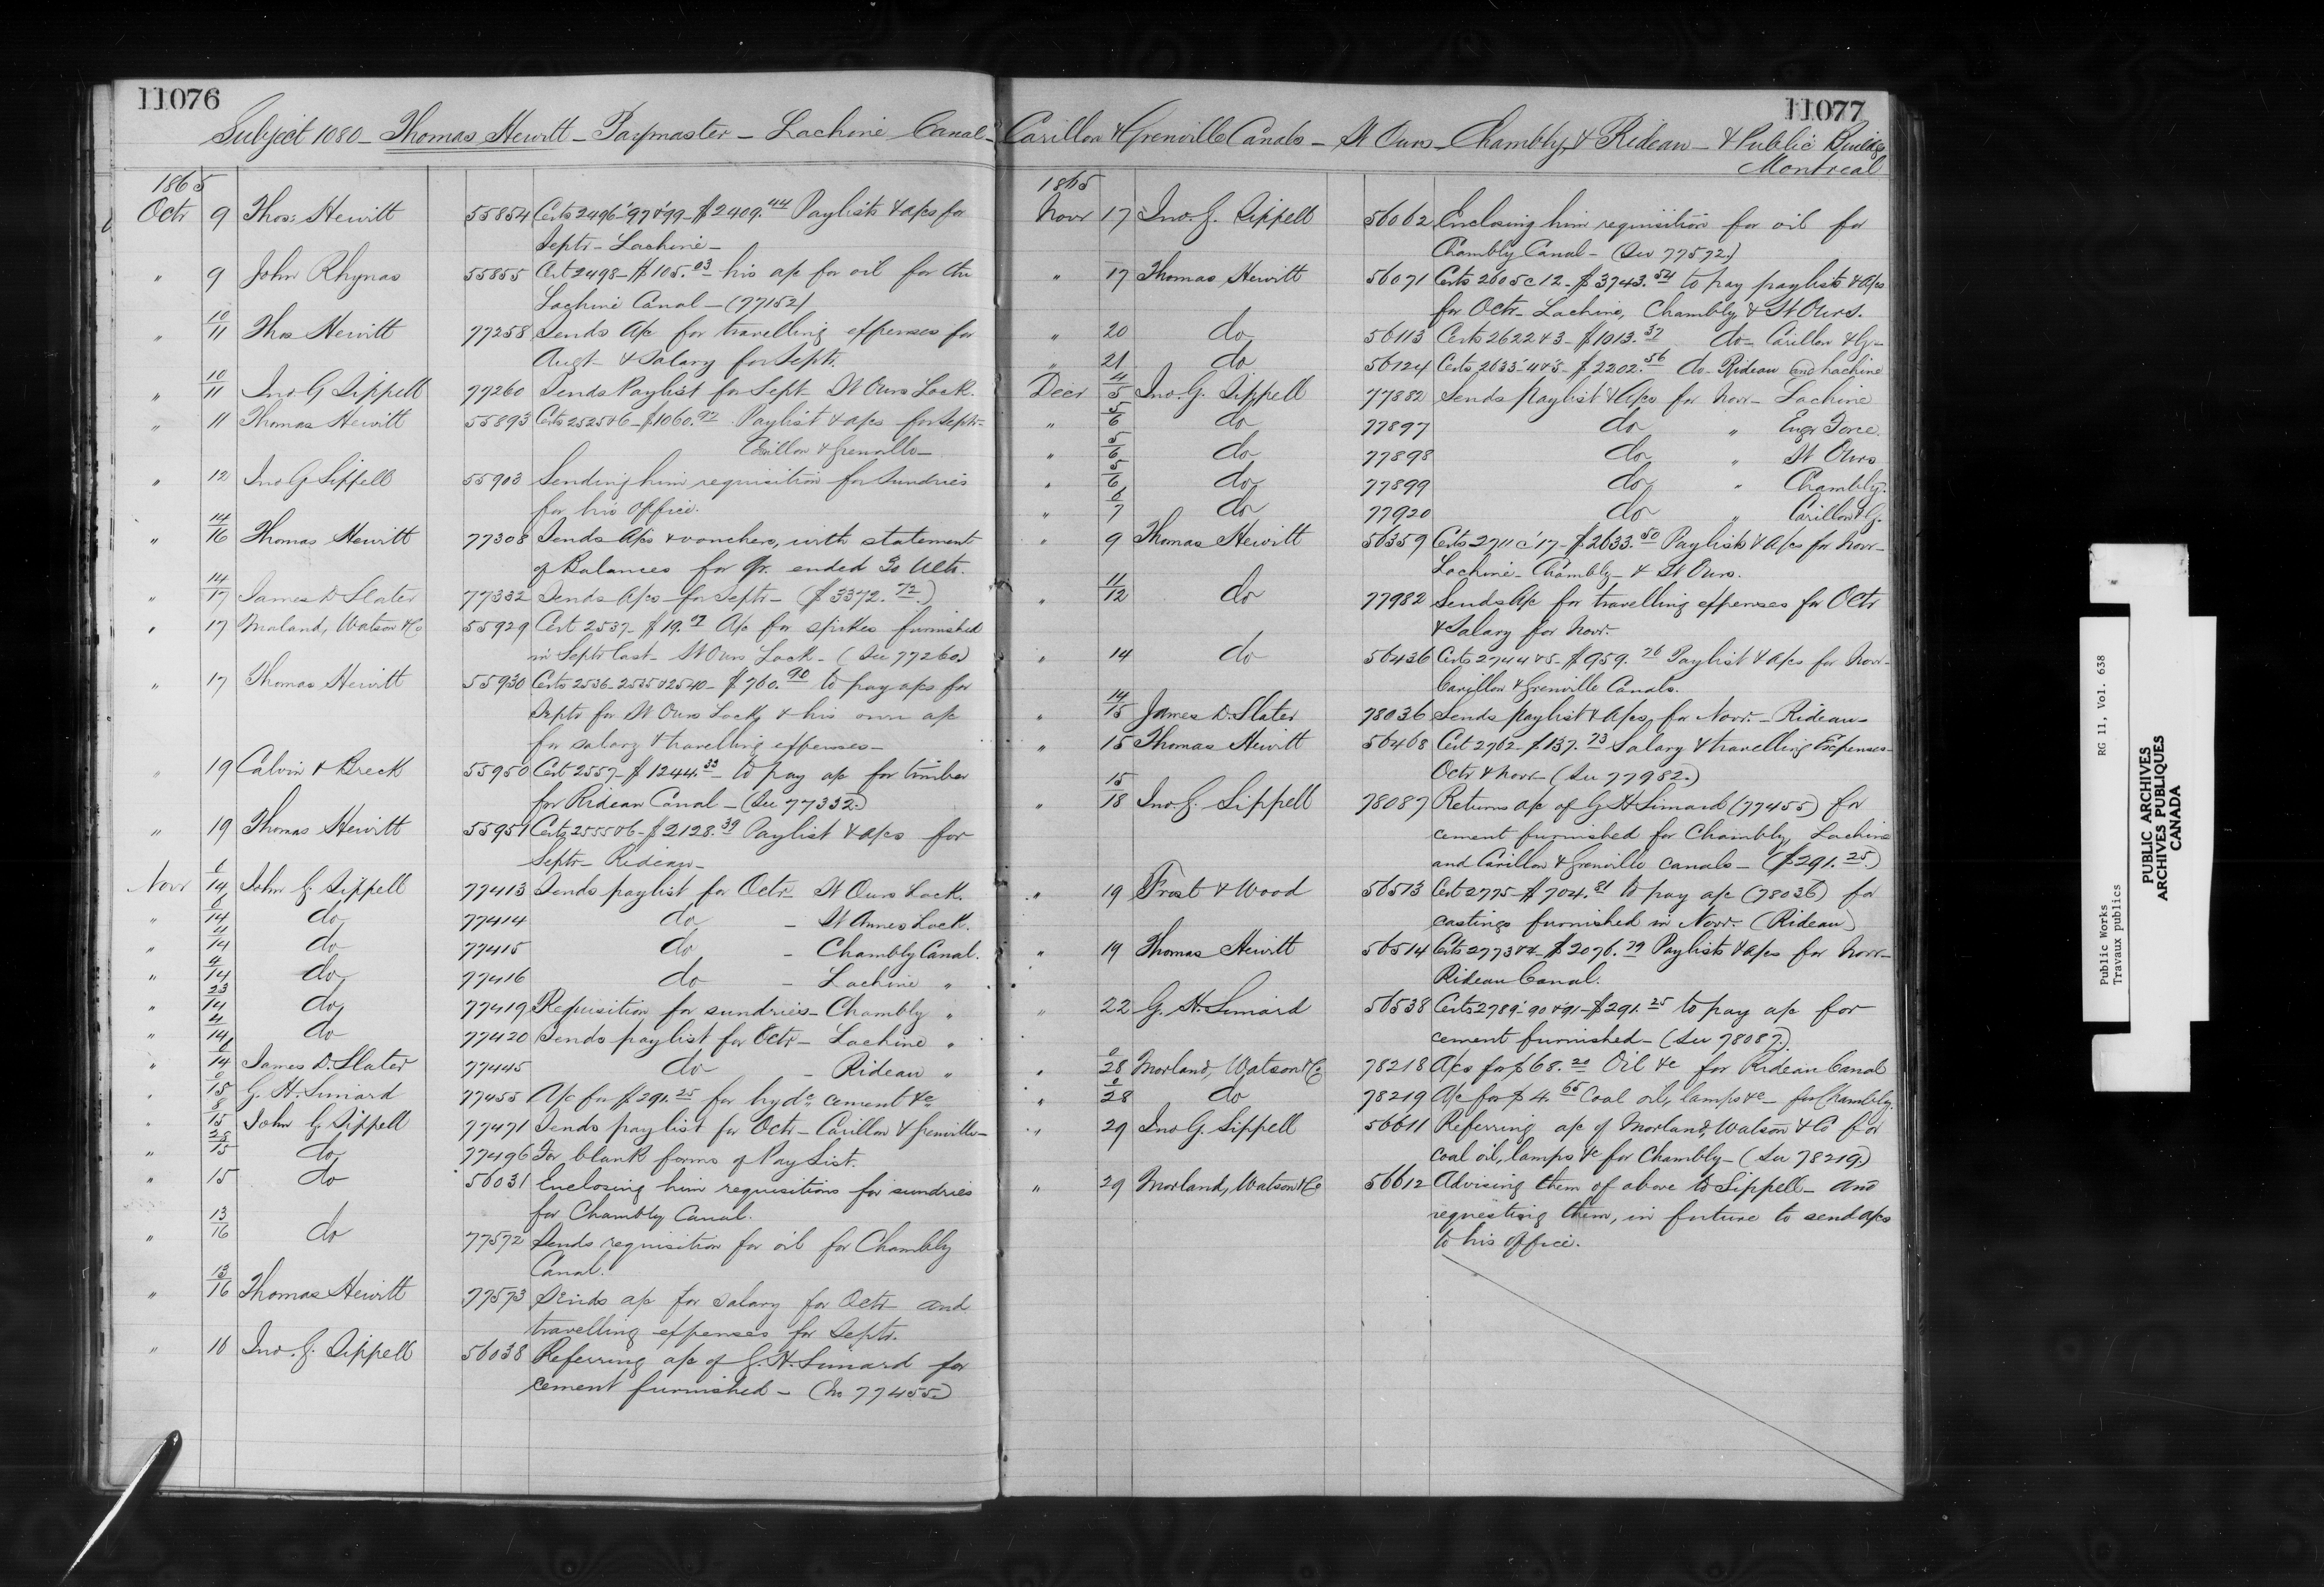 11076
Subject 1080 - Thomas Hewitt - Paymaster - Lachine Canal -
1865
Octr 9 Thos: Hewitt 55854 Certs 2496-'97&'99- $2409.44 Paylists & a/cs for
Septr - Lachine -
" 9 John Rhynas 55855 Cert 2498- $105.03 his a/c for oil for the
Lachine Canal - (77152)
" 10/11 Thos Hewitt 77258 Sends a/c for travelling expenses for
Augt & Salary for Septr.
" 10/11 Jno. G Sippell 77260 Sends Paylist for Sept St Ours Lock.
" 11 Thomas Hewitt 55893 Certs 2525&6- $1060.92 Paylist & a/cs for Septr-
Carillon & Grenville -
" 12 Jno G Sippell 55903 Sending him requisition for Sundries
for his office.
" 14/16 Thomas Hewitt 77308 Sends a/cs & vouchers, with statement
of Balances for Qr. ended 30 Ulto.
" 14/17 James D Slater 77332 Sends a/cs for Septr - ($3372.72)
" 17 Moland, Watson & Co 55929 Cert 2537- $19.07 a/c for spikes furnished
in Septr last - St Ours Lock - (See 77260)
" 17 Thomas Hewitt 55930 Certs 2536-2535&2540- $760.90 to pay a/cs for
Septr for St Ours Lock, & his own a/c
for salary & travelling expenses -
" 19 Calvin & Breck 55950 Cert 2557- $1244.33 - to pay a/c for timber
for Rideau Canal - (See 77332)
" 19 Thomas Hewitt 55951 Certs 2555&6- $2128.39 Paylist & a/cs for
Septr - Rideau -
Novr 6/14 John G. Sippell 77413 Sends paylist for Octr - St Ours Lock.
" 6/14 do 77414 do - St Annes Lock.
" 4/14 do 77415 do - Chambly Canal.
" 4/14 do 77416 do - Lachine "
" 23/14 do 77419 Requisition for sundries - Chambly "
" 4/14 do 77420 Sends paylist for Octr - Lachine "
" 6/14 James D. Slater 77445 do - Rideau "
" 15 G. H. Simard 77455 A/c for $291.25 for hydc cement &c
" 8/15 John G Sippell 77471 Sends paylist for Octr - Carillon & Grenville -
" 25/15 do 77496 For blank forms of Pay List.
" 15 do 56031 Enclosing him requisitions for sundries
for Chambly Canal.
" 13/16 do 77572 Sends requisition for oil for Chambly
Canal.
" 13/16 Thomas Hewitt 77573 Sends a/c for salary for Octr and
travelling expenses for Septr.
" 16 Jno. G. Sippell 56038 Referring a/c of G. H. Simard for
cement furnished - (No 77455)
11077
Carillon & Grenville Canals - St Ours - Chambly & Rideau - & Public Buildgs
Montreal
1865
Novr 17 Jno. G. Sippell 56062 Enclosing him requisition for oil for
Chambly Canal - (See 77572)
" 17 Thomas Hewitt 56071 Certs 2605 c 12- $3743.54 to pay paylists & a/cs
for Octr - Lachine, Chambly, & St Ours.
" 20 do 56113 Certs 2622&3- $1013.37 do - Carillon & G -
" 21 do 56124 Certs 2633-'4&'5- $2202.56 do - Rideau and Lachine
Decr 4/5 Jno. G. Sippell 77882 Sends paylist & a/cs for Novr - Lachine
" 5/6 do 77897 do " Engr Force.
" 5/6 do 77898 do " St Ours
" 5/6 do 77899 do " Chambly.
" 6/7 do 77920 do " Carillon & G.
" 9 Thomas Hewitt 56359 Certs 2711 c '17- $2633.50 Paylists & a/cs for Novr -
Lachine - Chambly - & St Ours.
" 11/12 do 77982 Sends a/c for travelling expenses for Octr
& Salary for Novr.
" 14 do 56436 Certs 2744&5- $959.76 Paylist & a/cs for Novr -
Carillon & Grenville Canals.
" 14/15 James D. Slater 78036 Sends paylist & a/cs, for Novr. - Rideau -
" 15 Thomas Hewitt 56468 Cert 2762- $137.73 Salary & travelling Expenses -
Octr & Novr - (See 77982)
" 15/18 Jno G. Sippell 78087 Returns a/c of G H Simard (77455) for
cement furnished for Chambly, Lachine
and Carillon & Grenville canals - ($291.25)
" 19 Frost & Wood 56513 Cert 2775- $704.81 to pay a/c (78036) for
castings furnished in Novr. (Rideau)
" 19 Thomas Hewitt 56514 Certs 2773&4- $2076.79 Paylists & a/cs for Novr -
Rideau Canal.
" 22 G. H. Simard 56538 Certs 2789-'90&'91- $291.25 to pay a/c for
cement furnished - (See 78087.)
" 28 Morland, Watson & Co 78218 A/cs for $68.20 Oil &c for Rideau Canal
" 28 do 78219 A/c for $4.65 Coal oil, lamps &c - for Chambly.
" 29 Jno G. Sippell 56611 Referring a/c of Morland, Watson & Co for
coal oil, lamps &c for Chambly - (See 78219)
" 29 Morland, Watson & Co 56612 Advising them of above to Sippell - and
requesting them, in future to send a/cs
to his office.
Public Works RG 11, Vol. 638
Travaux publics
PUBLIC ARCHIVES
ARCHIVES PUBLIQUES
CANADA